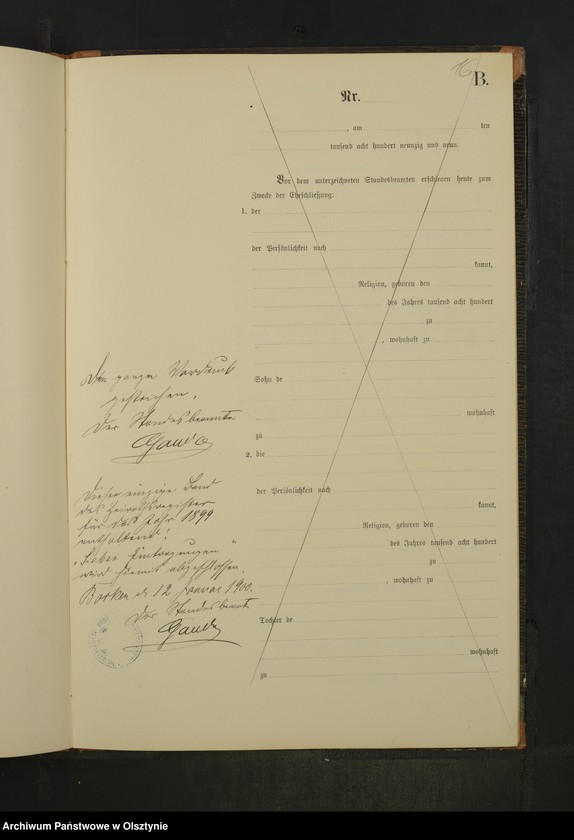 16
B.
Nr.
, am ten
tausend acht hundert neunzig und neun.
Vor dem unterzeichneten Standesbeamten erschienen heute zum
Zwecke der Eheschließung:
1. der
der Persönlichkeit nach
kannt,
Religion, geboren den
des Jahres tausend acht hundert
zu
, wohnhaft zu
Sohn de
wohnhaft
zu
2. die
der Persönlichkeit nach
kannt,
Religion, geboren den
des Jahres tausend acht hundert
zu
, wohnhaft zu
Tochter de
wohnhaft
zu
Den ganzen Vordruck
gestrichen.
Der Standesbeamte
Dieser einzige Band
des Heiratsregister
für das Jahr 1899
enthaltend:
"Sieben Eintragungen"
wird hiermit abgeschlossen.
Borken d 12 Januar 1900.
Der Standesbeamte
Archiwum Państwowe w Olsztynie